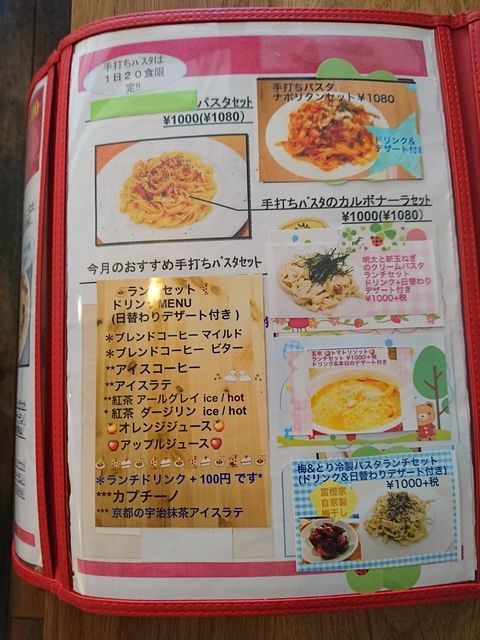 手打ちパスタは
1日20食限
定!!
パスタセット
¥1000(¥1080)
手打ちパスタ
ナポリタンセット¥1080
ドリンク&
デザート付き
手打ちパスタのカルボナーラセット
¥1000(¥1080)
今月のおすすめ手打ちパスタセット
ランチセット
ドリンクMENU
(日替わりデザート付き)
*ブレンドコーヒー マイルド
*ブレンドコーヒー ビター
**アイスコーヒー
**アイスラテ
**紅茶 アールグレイ ice / hot
*紅茶 ダージリン ice / hot
オレンジジュース
アップルジュース
*ランチドリンク +100円 です*
***カプチーノ
*** 京都の宇治抹茶アイスラテ
明太と新玉ねぎ
のクリームパスタ
ランチセット
ドリンク+日替わり
デザート付き
¥1000+税
玄米 トマトリゾット
ランチセット ¥1000+税
ドリンク&本日のデザート付き
梅&とり冷製パスタランチセット
(ドリンク&日替わりデザート付き)
¥1000+税
富樫家
自家製
梅干し